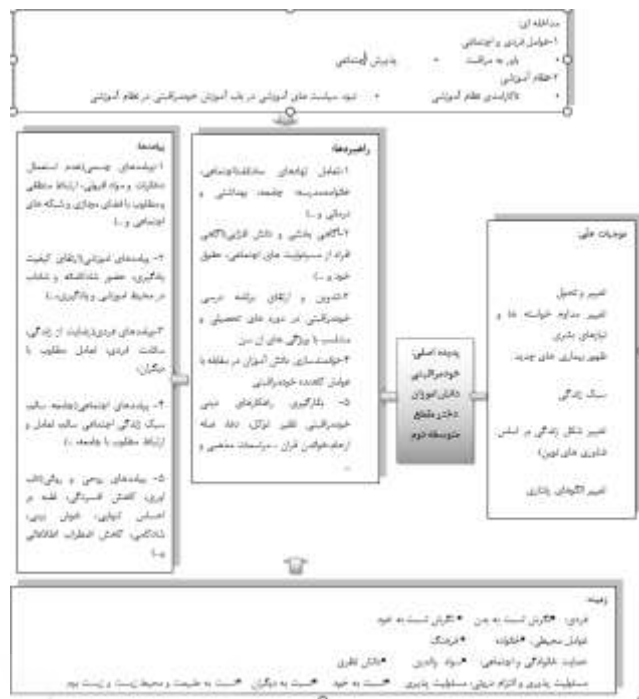 مداخله ای:
۱-عوامل فردی و اجتماعی
• باور به مراقبت • پذیرش اجتماعی
۲-نظام آموزشی
• ناکارآمدی نظام آموزشی • نبود سیاست های آموزشی در باب آموزش خودمراقبتی در نظام آموزشی
موجبات علّی:
تغییر و تحول
تغییر مداوم خواسته ها و
نیازهای بشری
ظهور بیماری های جدید
سبک زندگی
تغییر شکل زندگی بر اساس
فناوری های نوین)
تغییر الگوهای رفتاری
پدیده اصلی:
خودمراقبتی
دانش آموزان
دختر مقطع
متوسطه دوم
راهبردها:
۱-تعامل نهادهای مختلف(اجتماعی،
خانواده،مدرسه، جامعه، بهداشتی و
درمانی و...)
۲-آگاهی بخشی و دانش افزایی(آگاهی
افراد از مسئولیت های اجتماعی، حقوق
خود و ...)
۳-تدوین و ارتقای برنامه درسی
خودمراقبتی در دوره های تحصیلی و
متناسب با ویژگی های آن سن
۴-توانمندسازی دانش آموزان در مقابله با
عوامل کاهنده خودمراقبتی
۵- بکارگیری راهکارهای دینی
خودمراقبتی نظیر توکل، دعا، صله
ارحام،خواندن قرآن ، مراسمات مذهبی و
...
پیامدها:
۱-پیامدهای جسمی(عدم استعمال
دخانیات و مواد افیونی، ارتباط منطقی
ومطلوب با فضای مجازی و شبکه های
اجتماعی و ...)
۲- پیامدهای آموزشی(ارتقای کیفیت
یادگیری، حضور شاد و شاداب
در محیط آموزشی و یادگیری،...)
۳-پیامدهای فردی(رضایت از زندگی،
سلامت فردی، تعامل مطلوب با
دیگران)
۴- پیامدهای اجتماعی(جامعه سالم،
سبک زندگی اجتماعی سالم، تعامل و
ارتباط مطلوب با جامعه، ...)
۵- پیامدهای روحی و روانی(تاب
آوری، کاهش افسردگی، غلبه بر
احساس تنهایی، خوش بینی،
شادکامی، کاهش اضطراب
و...)
زمینه:
فردی: •نگرش نسبت به بدن •نگرش نسبت به خود
عوامل محیطی: •خانواده •فرهنگ
حمایت خانوادگی و اجتماعی: •سواد والدین •دانش نظری
مسئولیت پذیری و التزام درونی: مسئولیت پذیری •نسبت به خود •نسبت به دیگران •نسبت به طبیعت و محیط زیست و زیست بوم